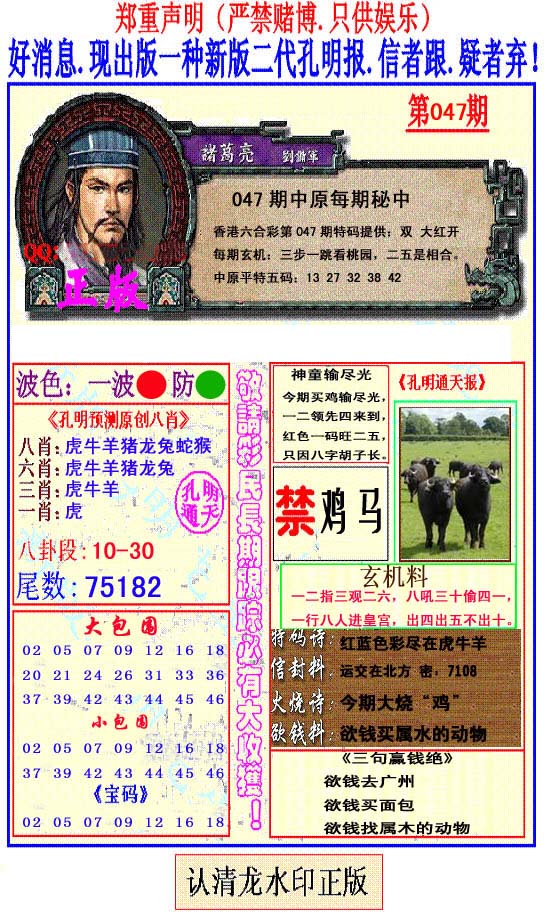 郑重声明（严禁赌博.只供娱乐）
好消息.现出版一种新版二代孔明报.信者跟.疑者弃!
第047期
諸葛亮 劉備軍
047期中原每期秘中
香港六合彩第047期特码提供：双 大红开
每期玄机：三步一跳看桃园，二五是相合。
中原平特五码：13 27 32 38 42
QQ:
正版
波色：一波 防
《孔明预测原创八肖》
八肖:虎牛羊猪龙兔蛇猴
六肖:虎牛羊猪龙兔
三肖:虎牛羊
一肖:虎
孔明
通天
八卦段:10-30
尾数:75182
大包围
02 05 07 09 12 16 18
20 21 24 26 31 33 36
37 39 42 43 44 45 46
小包围
02 05 07 09 12 16 18
37 39 42 43 44 45 46
《宝码》
02 05 07 09 12 16 18
敬請彩民長期跟踪必有大收獲！
神童输尽光
今期买鸡输尽光，
一二领先四来到，
红色一码旺二五，
只因八字胡子长。
《孔明通天报》
禁 鸡马
玄机料
一二指三观二六，八吼三十偷四一，
一行八人进皇宫，出四出五不出十。
特码诗:红蓝色彩尽在虎牛羊
信封料:运交在北方 密，7108
火烧诗:今期大烧“鸡”
欲钱料:欲钱买属水的动物
《三句赢钱绝》
欲钱去广州
欲钱买面包
欲钱找属木的动物
认清龙水印正版